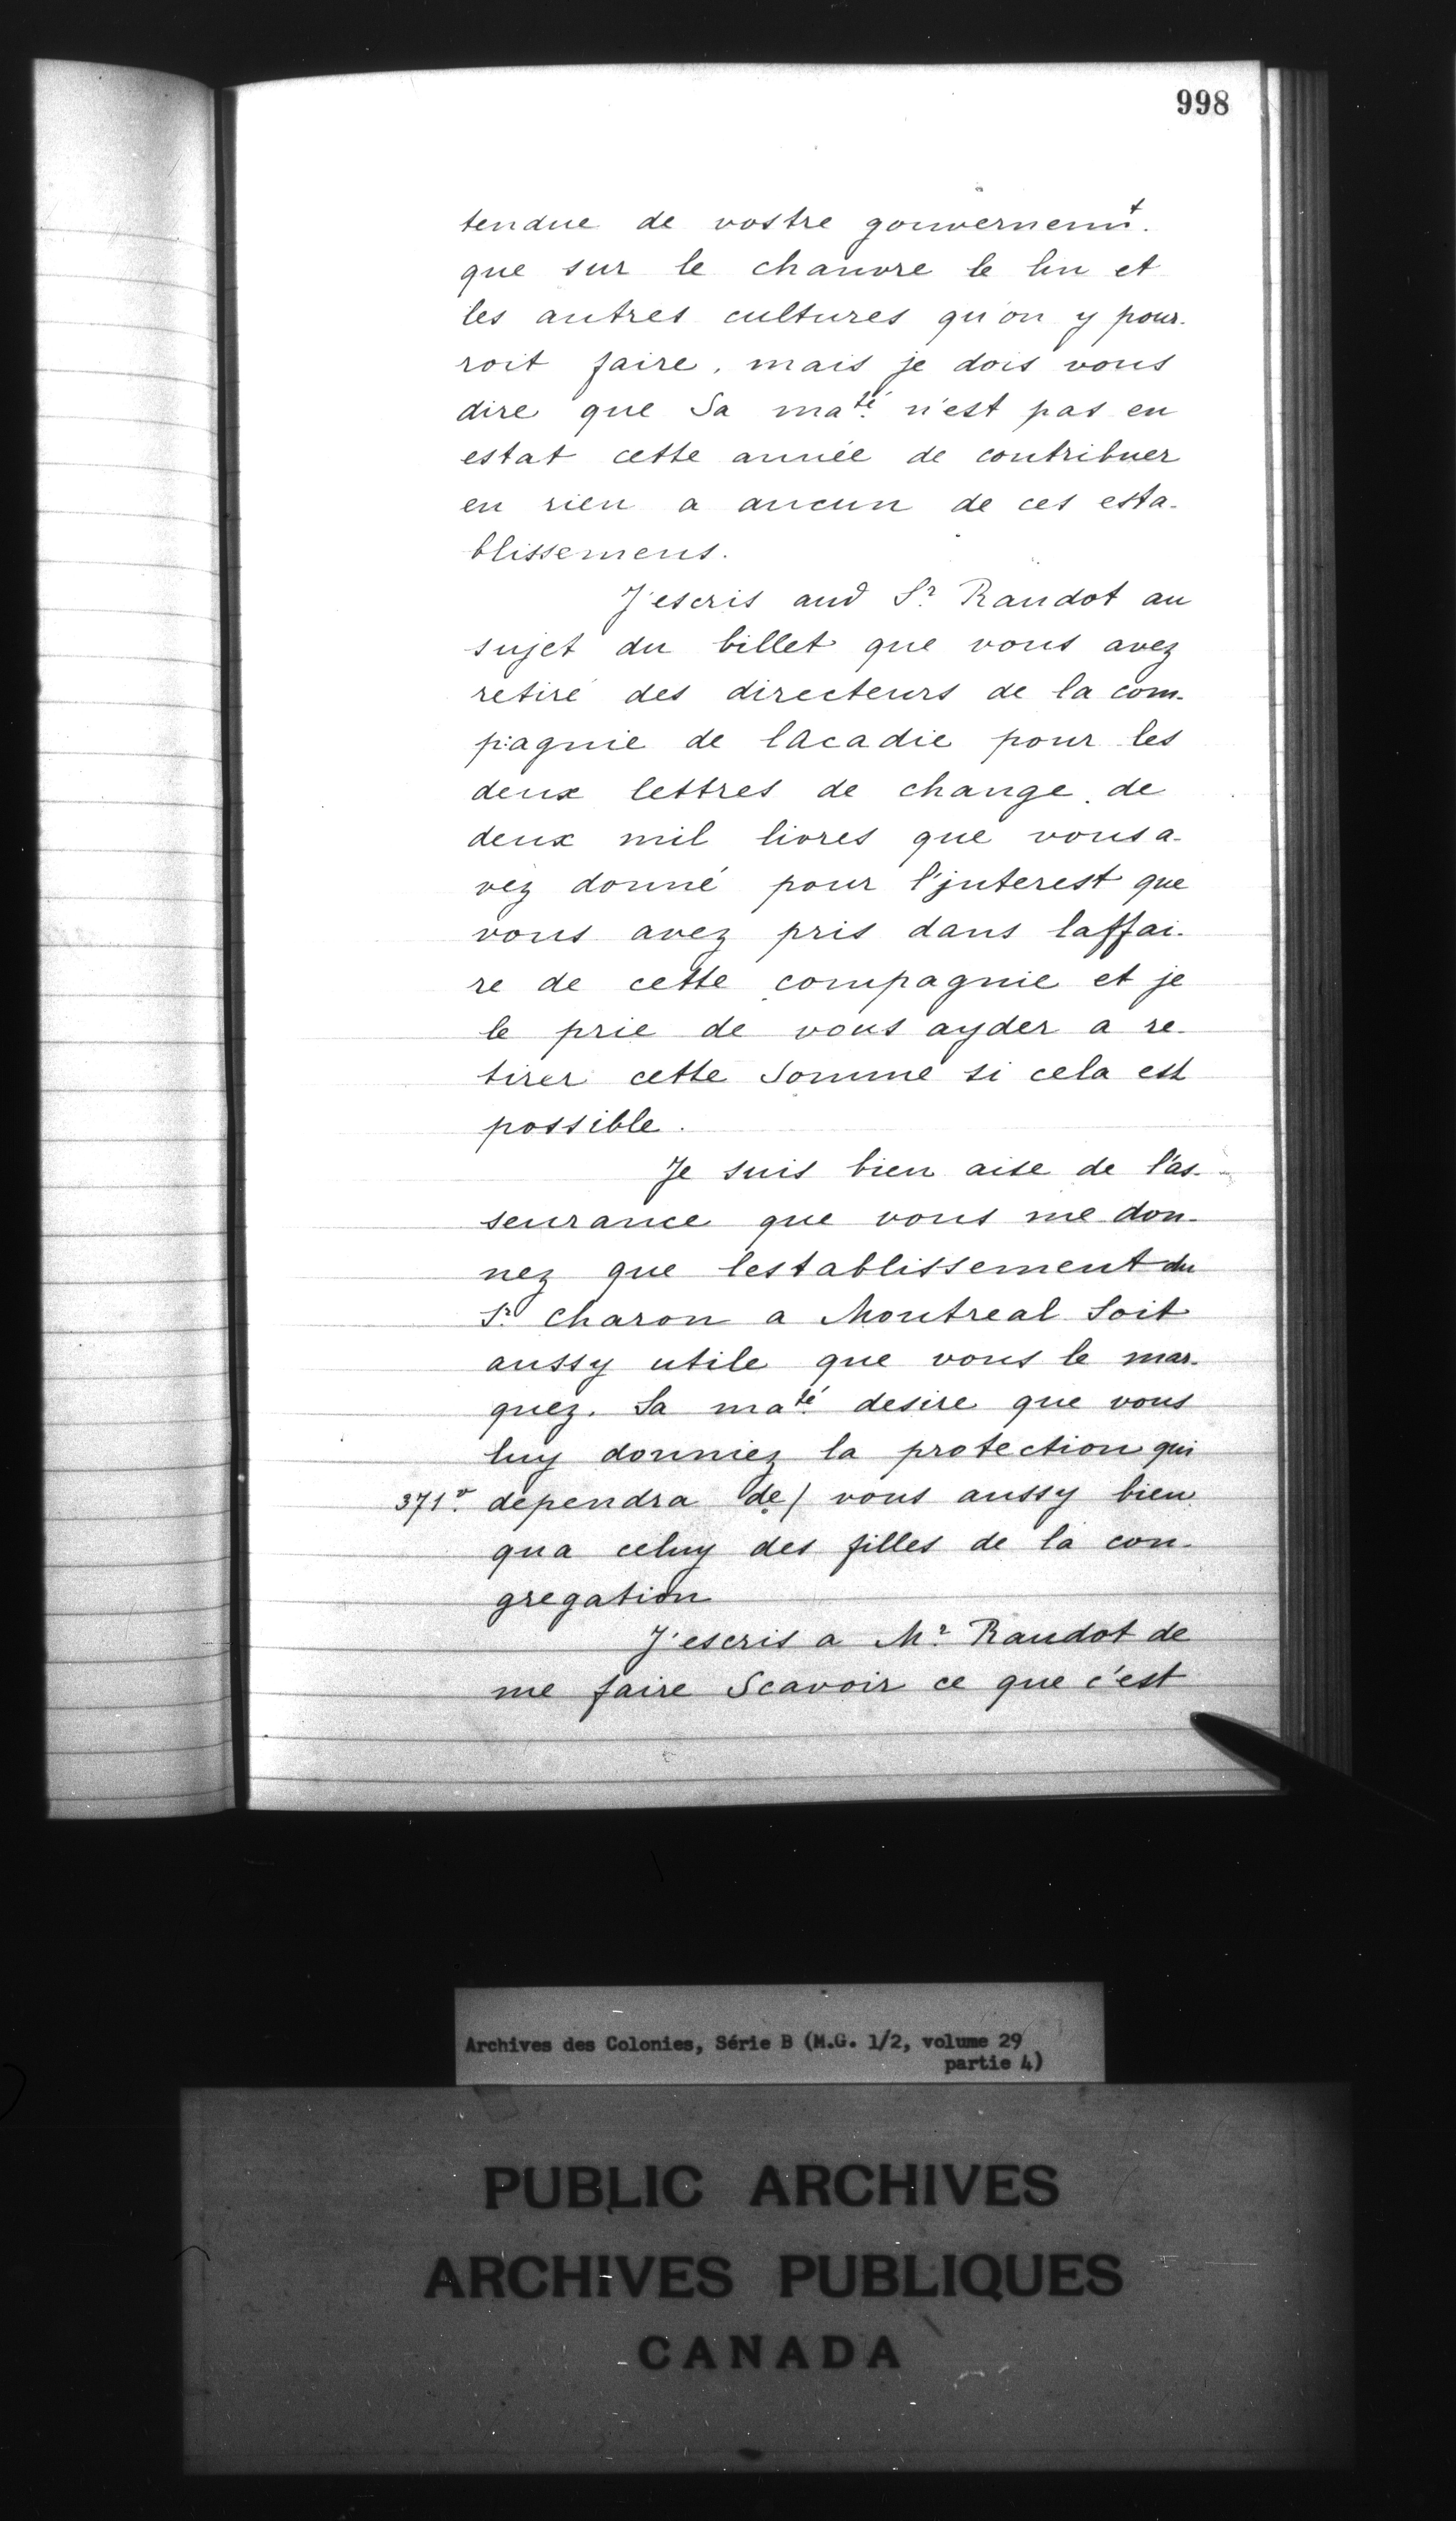 998
tendue de vostre gouvernemt.
que sur le chanvre le lin et
les autres cultures qu'on y pour-
roit faire, mais je dois vous
dire que Sa maté n'est pas en
estat cette année de contribuer
en rien a aucun de ces esta-
blissemens.
J'escris aud Sr Raudot au
sujet du billet que vous avez
retiré des directeurs de la com-
pagnie de lacadie pour les
deux lettres de change de
deux mil livres que vous a-
vez donné pour l'jnterest que
vous avez pris dans laffai-
re de cette compagnie et je
le prie de vous ayder a re-
tirer cette Somme si cela est
possible.
Je suis bien aise de l'as-
seurance que vous me don-
nez que lestablissement du
Sr Charon a Montreal Soit
aussy utile que vous le mar-
quez. Sa maté desire que vous
luy donniez la protection qui
371vo. dependra de/ vous aussy bien
qua celuy des filles de la con-
gregation
J'escris a Mr Raudot de
me faire Scavoir ce que c'est
Archives des Colonies, Série B (M.G. 1/2, volume 29
partie 4)
PUBLIC ARCHIVES
ARCHIVES PUBLIQUES
CANADA